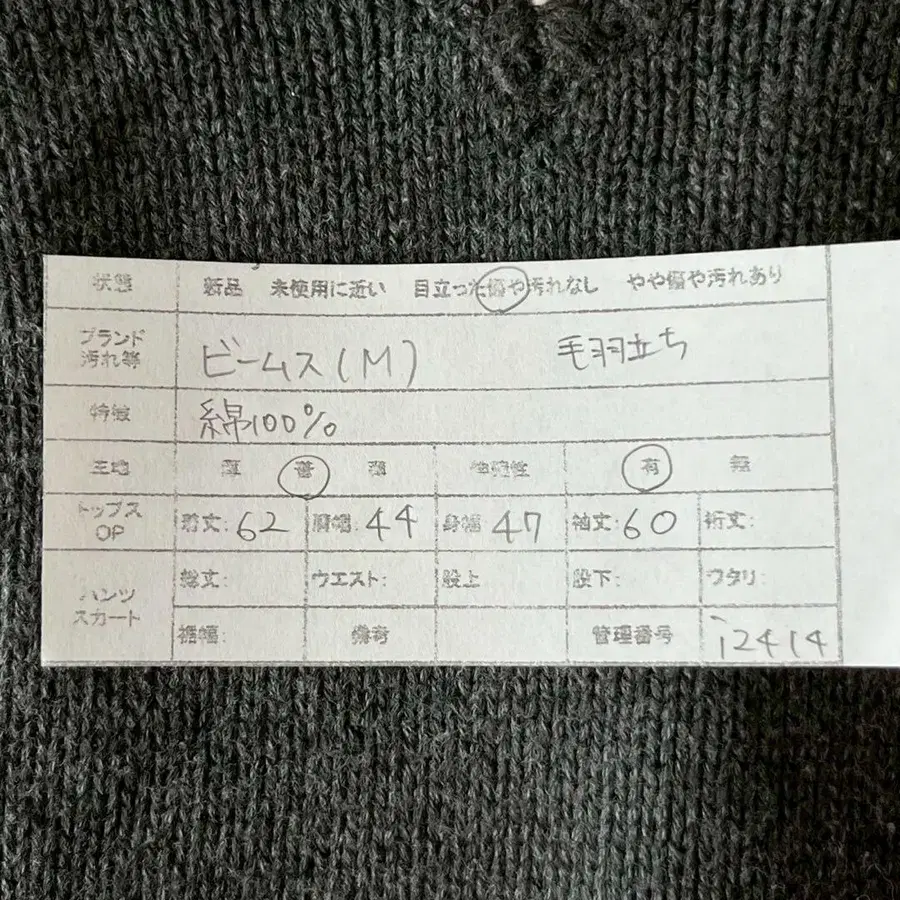 状態 新品 未使用に近い 目立った傷や汚れなし やや傷や汚れあり
ブランド
汚れ等 ビームス(M) 毛羽立ち
特徴 綿100%
生地 薄 普 厚 伸縮性 有 無
トップス
OP 着丈: 62 肩幅: 44 身幅: 47 袖丈: 60 裄丈:
パンツ
スカート 総丈: ウエスト: 股上 股下: ワタリ:
裾幅: 備考 管理番号 i2414